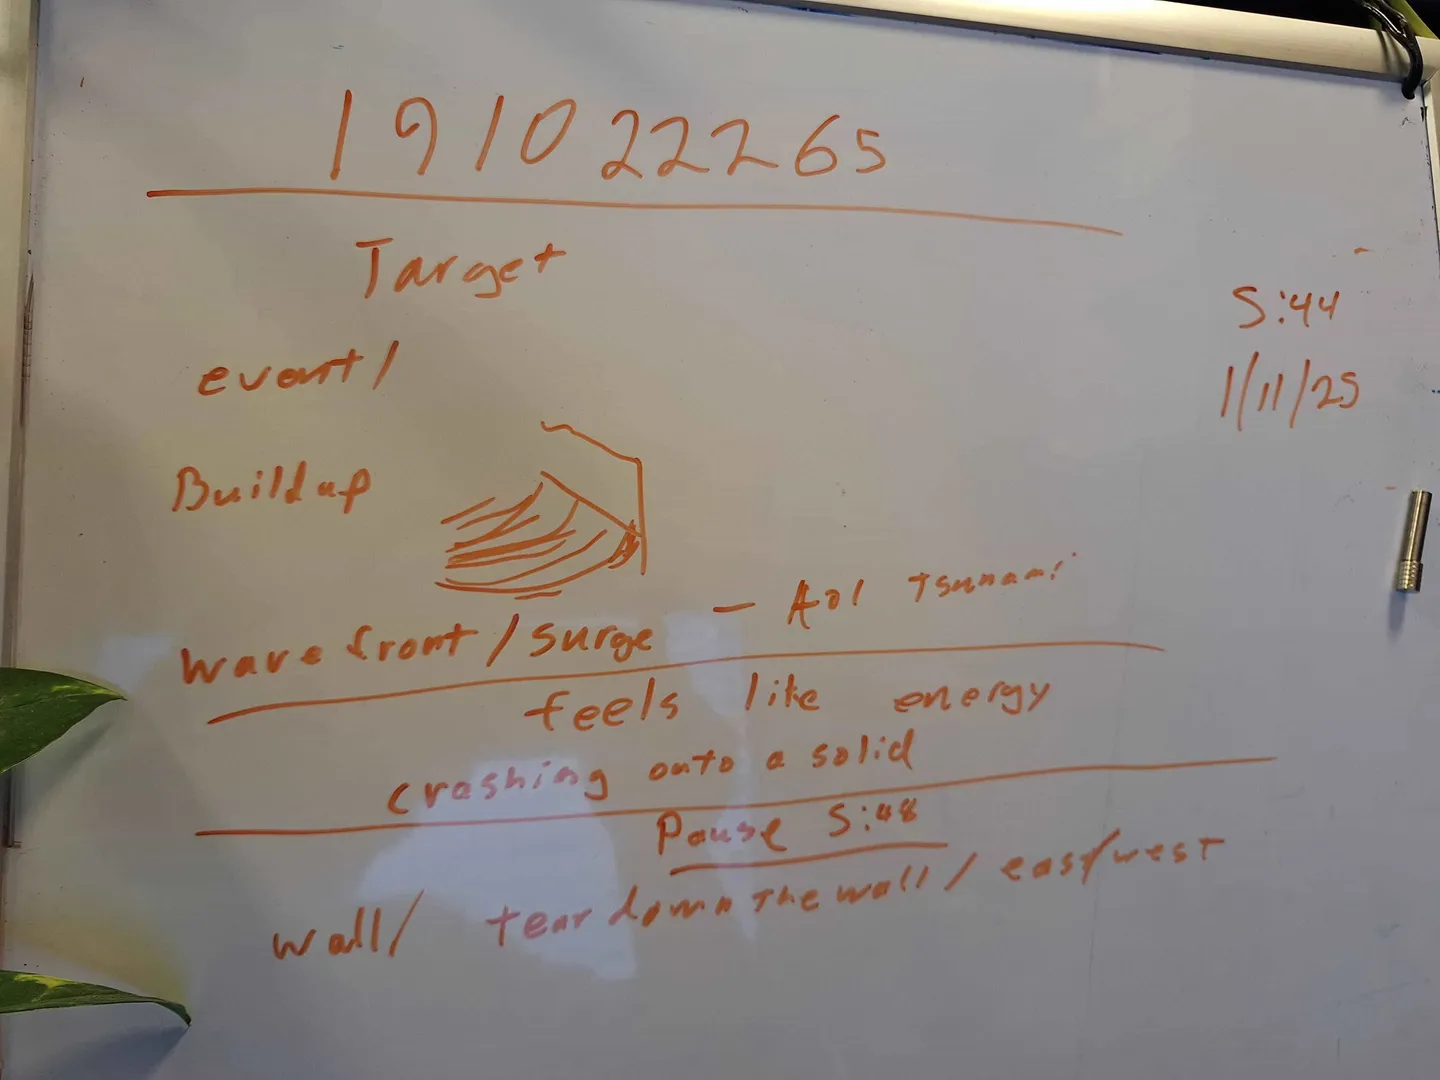 191022265
Target
5:44
1/11/25
event/
Buildup
wavefront/surge - Aol tsunami
feels like energy
crashing onto a solid
Pause 5:48
wall/ tear down the wall/ east/west